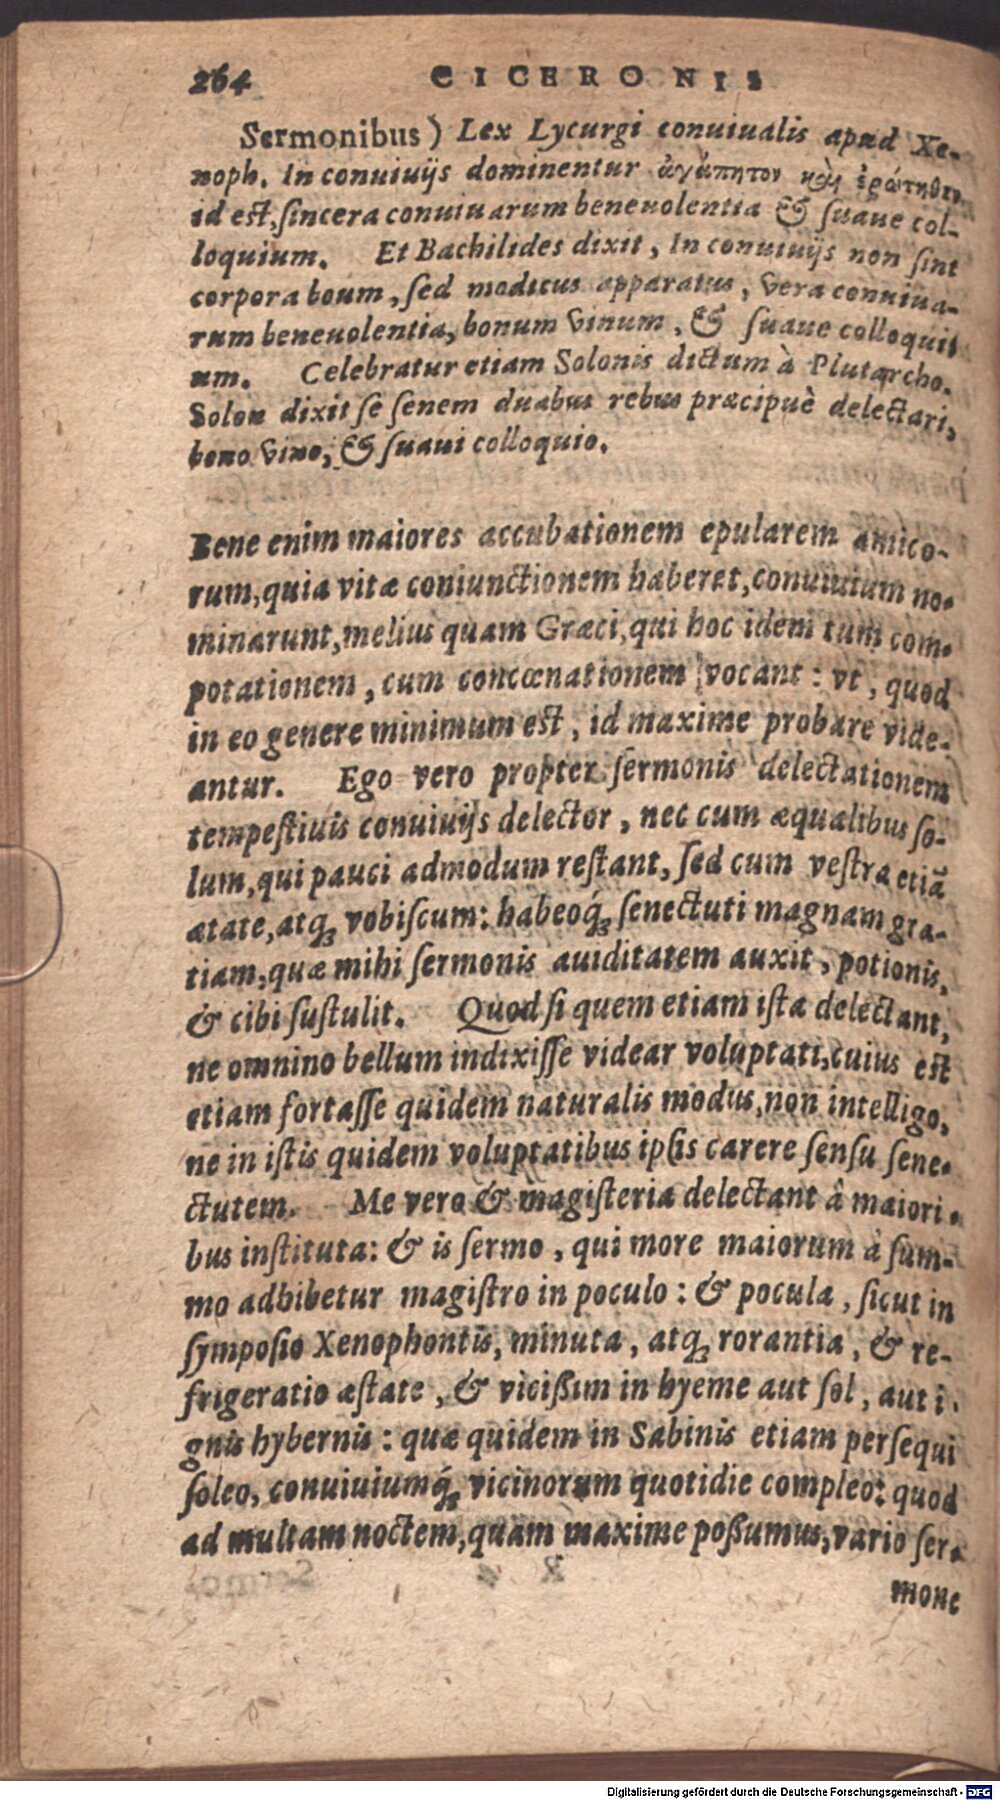 264 CICERONIS
Sermonibus) Lex Lycurgi conuiualis apud Xe-
noph. In conuiuijs dominentur ἀγάπητον καὶ ἐρώτηθεν
id est, sincera conuiuarum beneuolentia & suaue col-
loquium. Et Bachilides dixit, In conuiuijs non sint
corpora boum, sed modicus apparatus, vera conuiua-
rum beneuolentia, bonum vinum, & suaue colloqui
um. Celebratur etiam Solonis dictum à Plutarcho.
Solon dixit se senem duabus rebus præcipuè delectari,
bono vino, & suaui colloquio.
Bene enim maiores accubationem epularem amico-
rum, quia vitæ coniunctionem haberet, conuiuium no-
minarunt, melius quam Græci, qui hoc idem tum com-
potationem, cum concœnationem vocant: vt, quod
in eo genere minimum est, id maxime probare vide-
antur. Ego vero propter sermonis delectationem
tempestiuis conuiuijs delector, nec cum æqualibus so-
lum, qui pauci admodum restant, sed cum vestra etiã
ætate, atq; vobiscum: habeoq́; senectuti magnam gra-
tiam, quæ mihi sermonis auiditatem auxit, potionis,
& cibi sustulit. Quod si quem etiam ista delectant,
ne omnino bellum indixisse videar voluptati, cuius est
etiam fortasse quidem naturalis modus, non intelligo,
ne in istis quidem voluptatibus ipsis carere sensu sene-
ctutem. Me vero & magisteria delectant â maiori-
bus instituta: & is sermo, qui more maiorum à sum-
mo adhibetur magistro in poculo: & pocula, sicut in
symposio Xenophontis, minuta, atq; rorantia, & re-
frigeratio æstate, & vicißim in hyeme aut sol, aut i-
gnis hybernis: quæ quidem in Sabinis etiam persequi
soleo, conuiuiumq́; vicinorum quotidie compleo: quod
ad multam noctem, quam maxime poßumus, vario ser-
mone
Digitalisierung gefördert durch die Deutsche Forschungsgemeinschaft - DFG